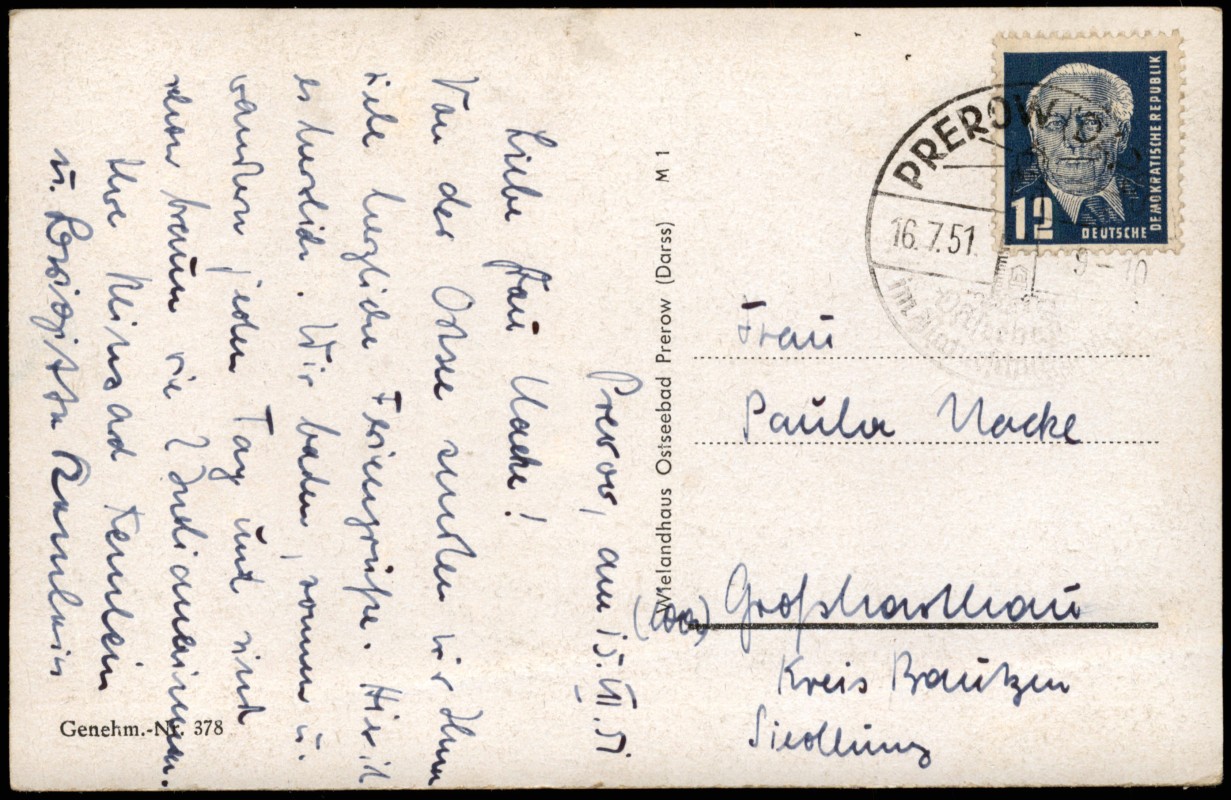 Prerow, am 15. VII. 51
Liebe Frau Nacke!
Von der Ostsee senden wir Ihnen
viele herzliche Feriengrüße. Hier ist
es herrlich. Wir baden, sonnen u.
wandern jeden Tag und sind
schon braun wie 2 Indianerinnen.
Ihre
u. Brigitte
Genehm.-Nr. 378
Wielandhaus Ostseebad Prerow (Darss) M 1
PREROW
16.7.51
9–10
12
DEUTSCHE
DEMOKRATISCHE REPUBLIK
Frau
Paula Nacke
Großharthau
Kreis Bautzen
Siedlung